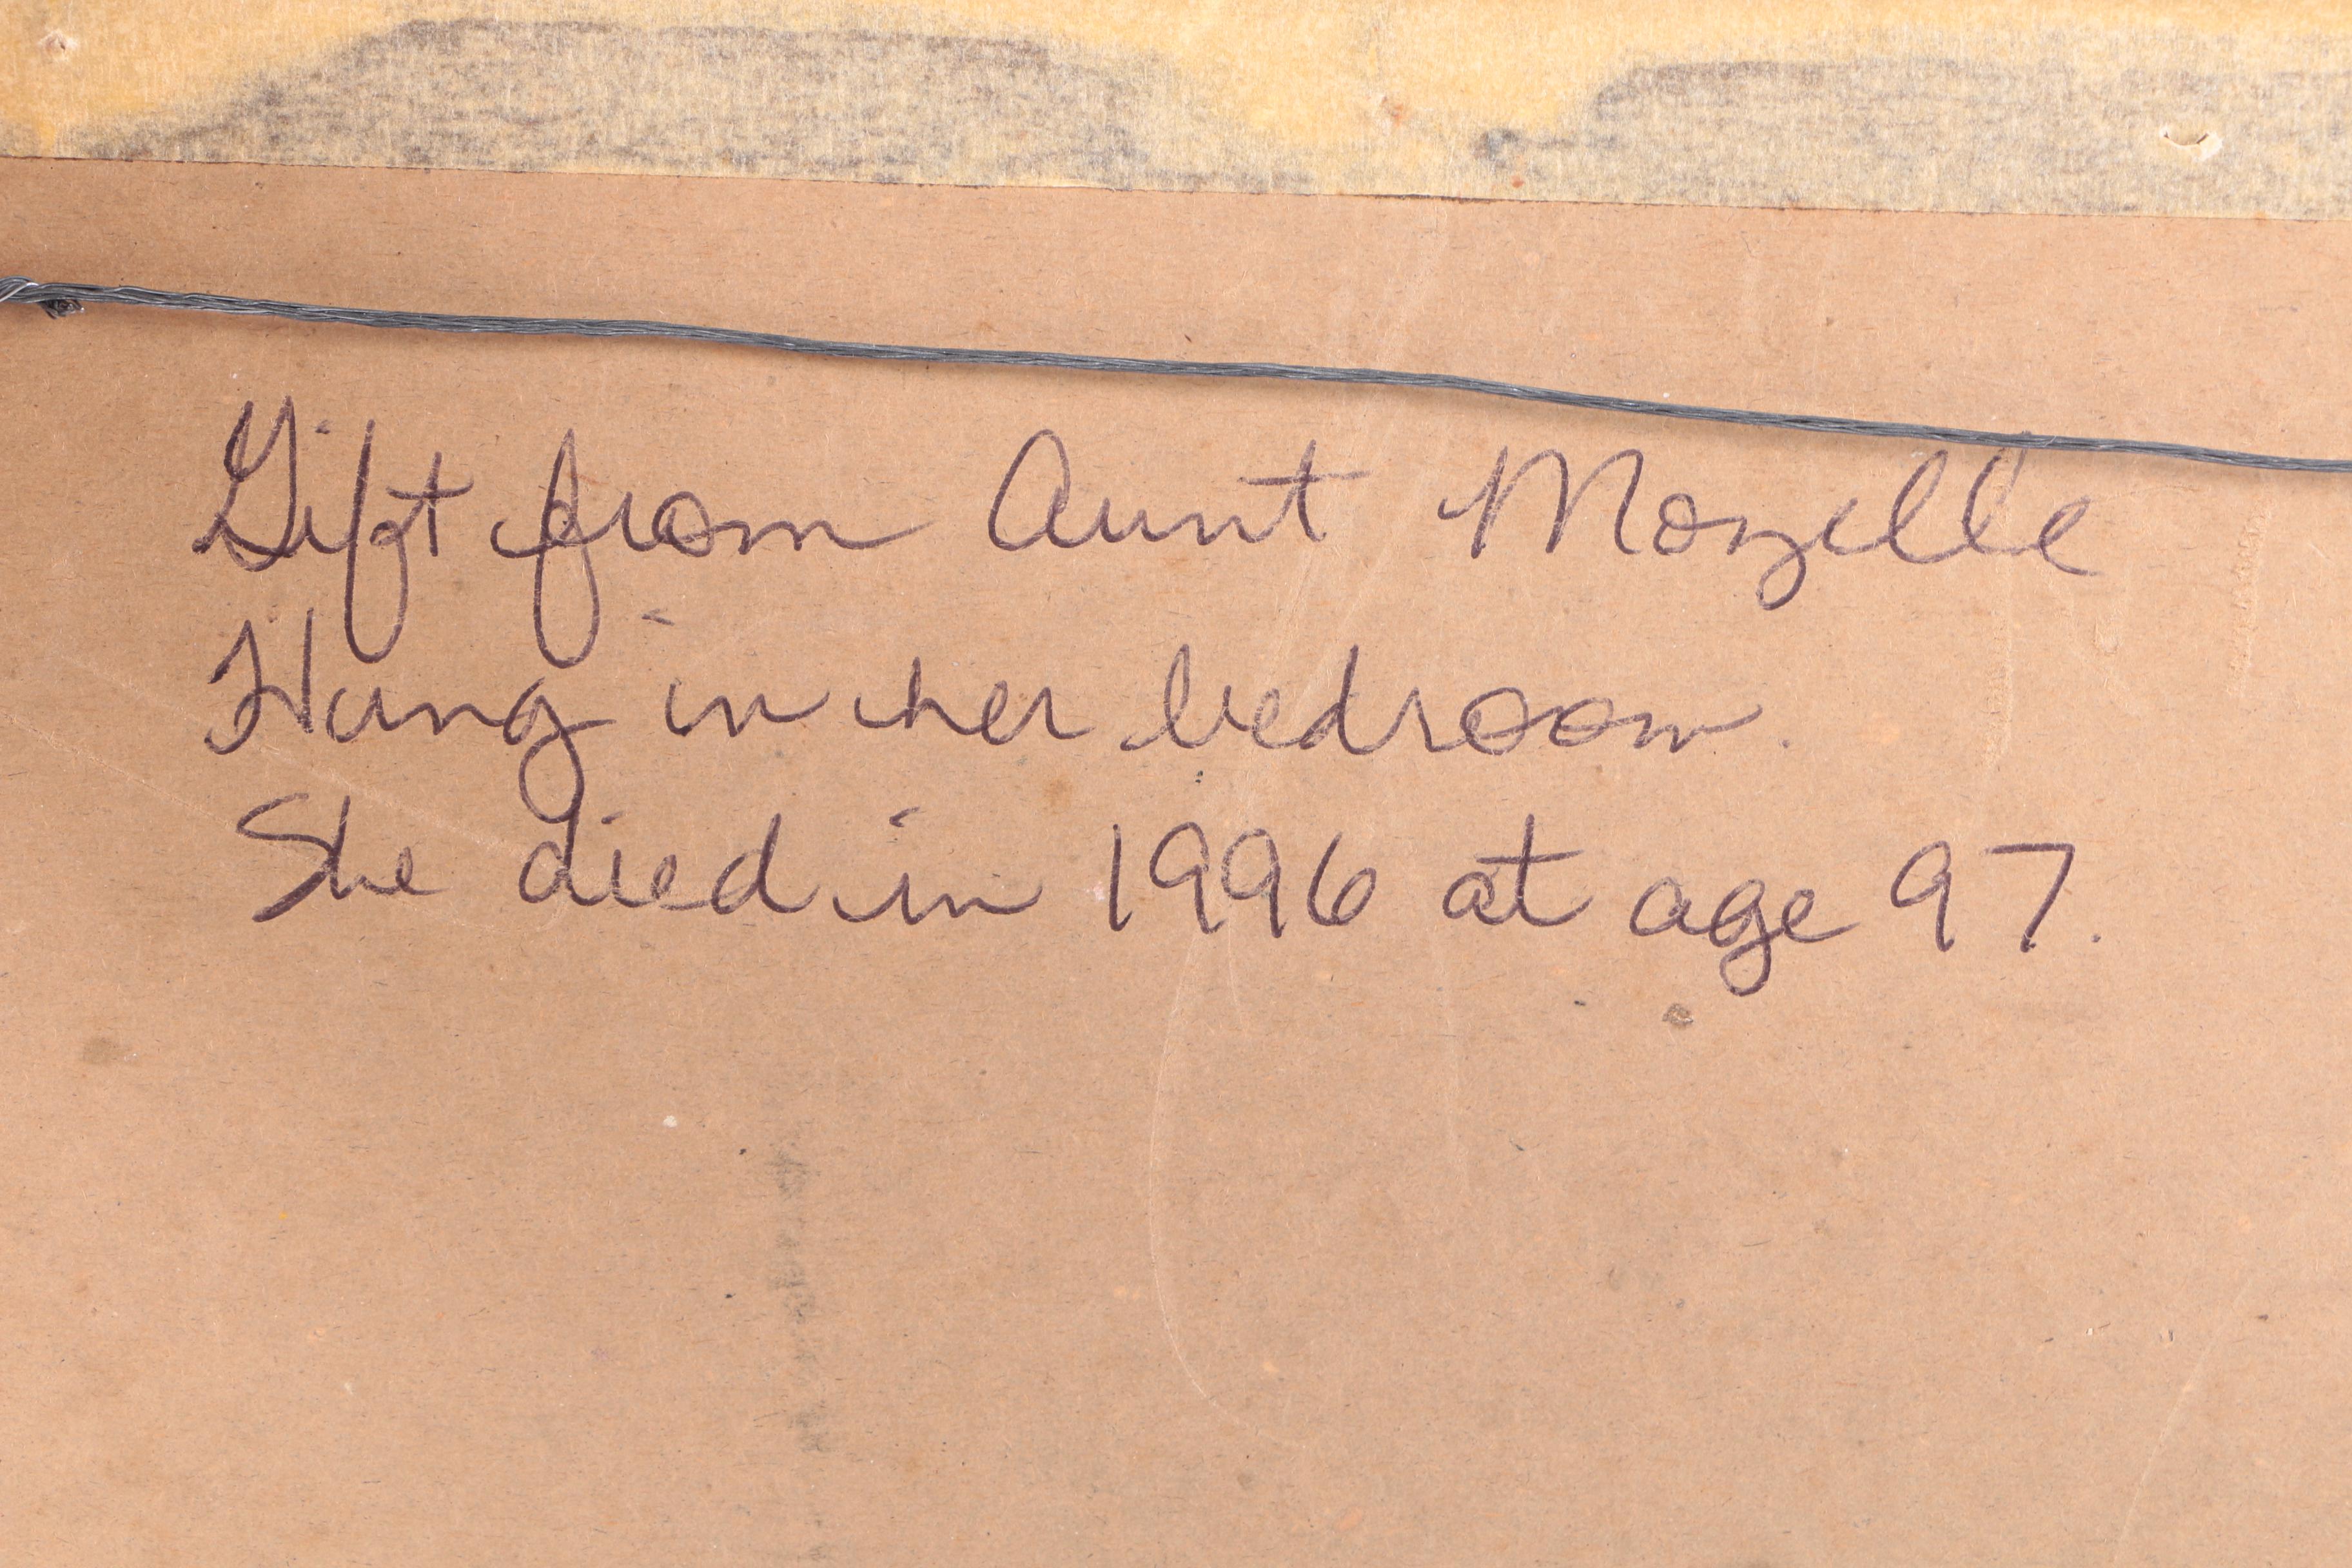 Gift from Aunt Mozelle
Hung in her bedroom.
She died in 1996 at age 97.